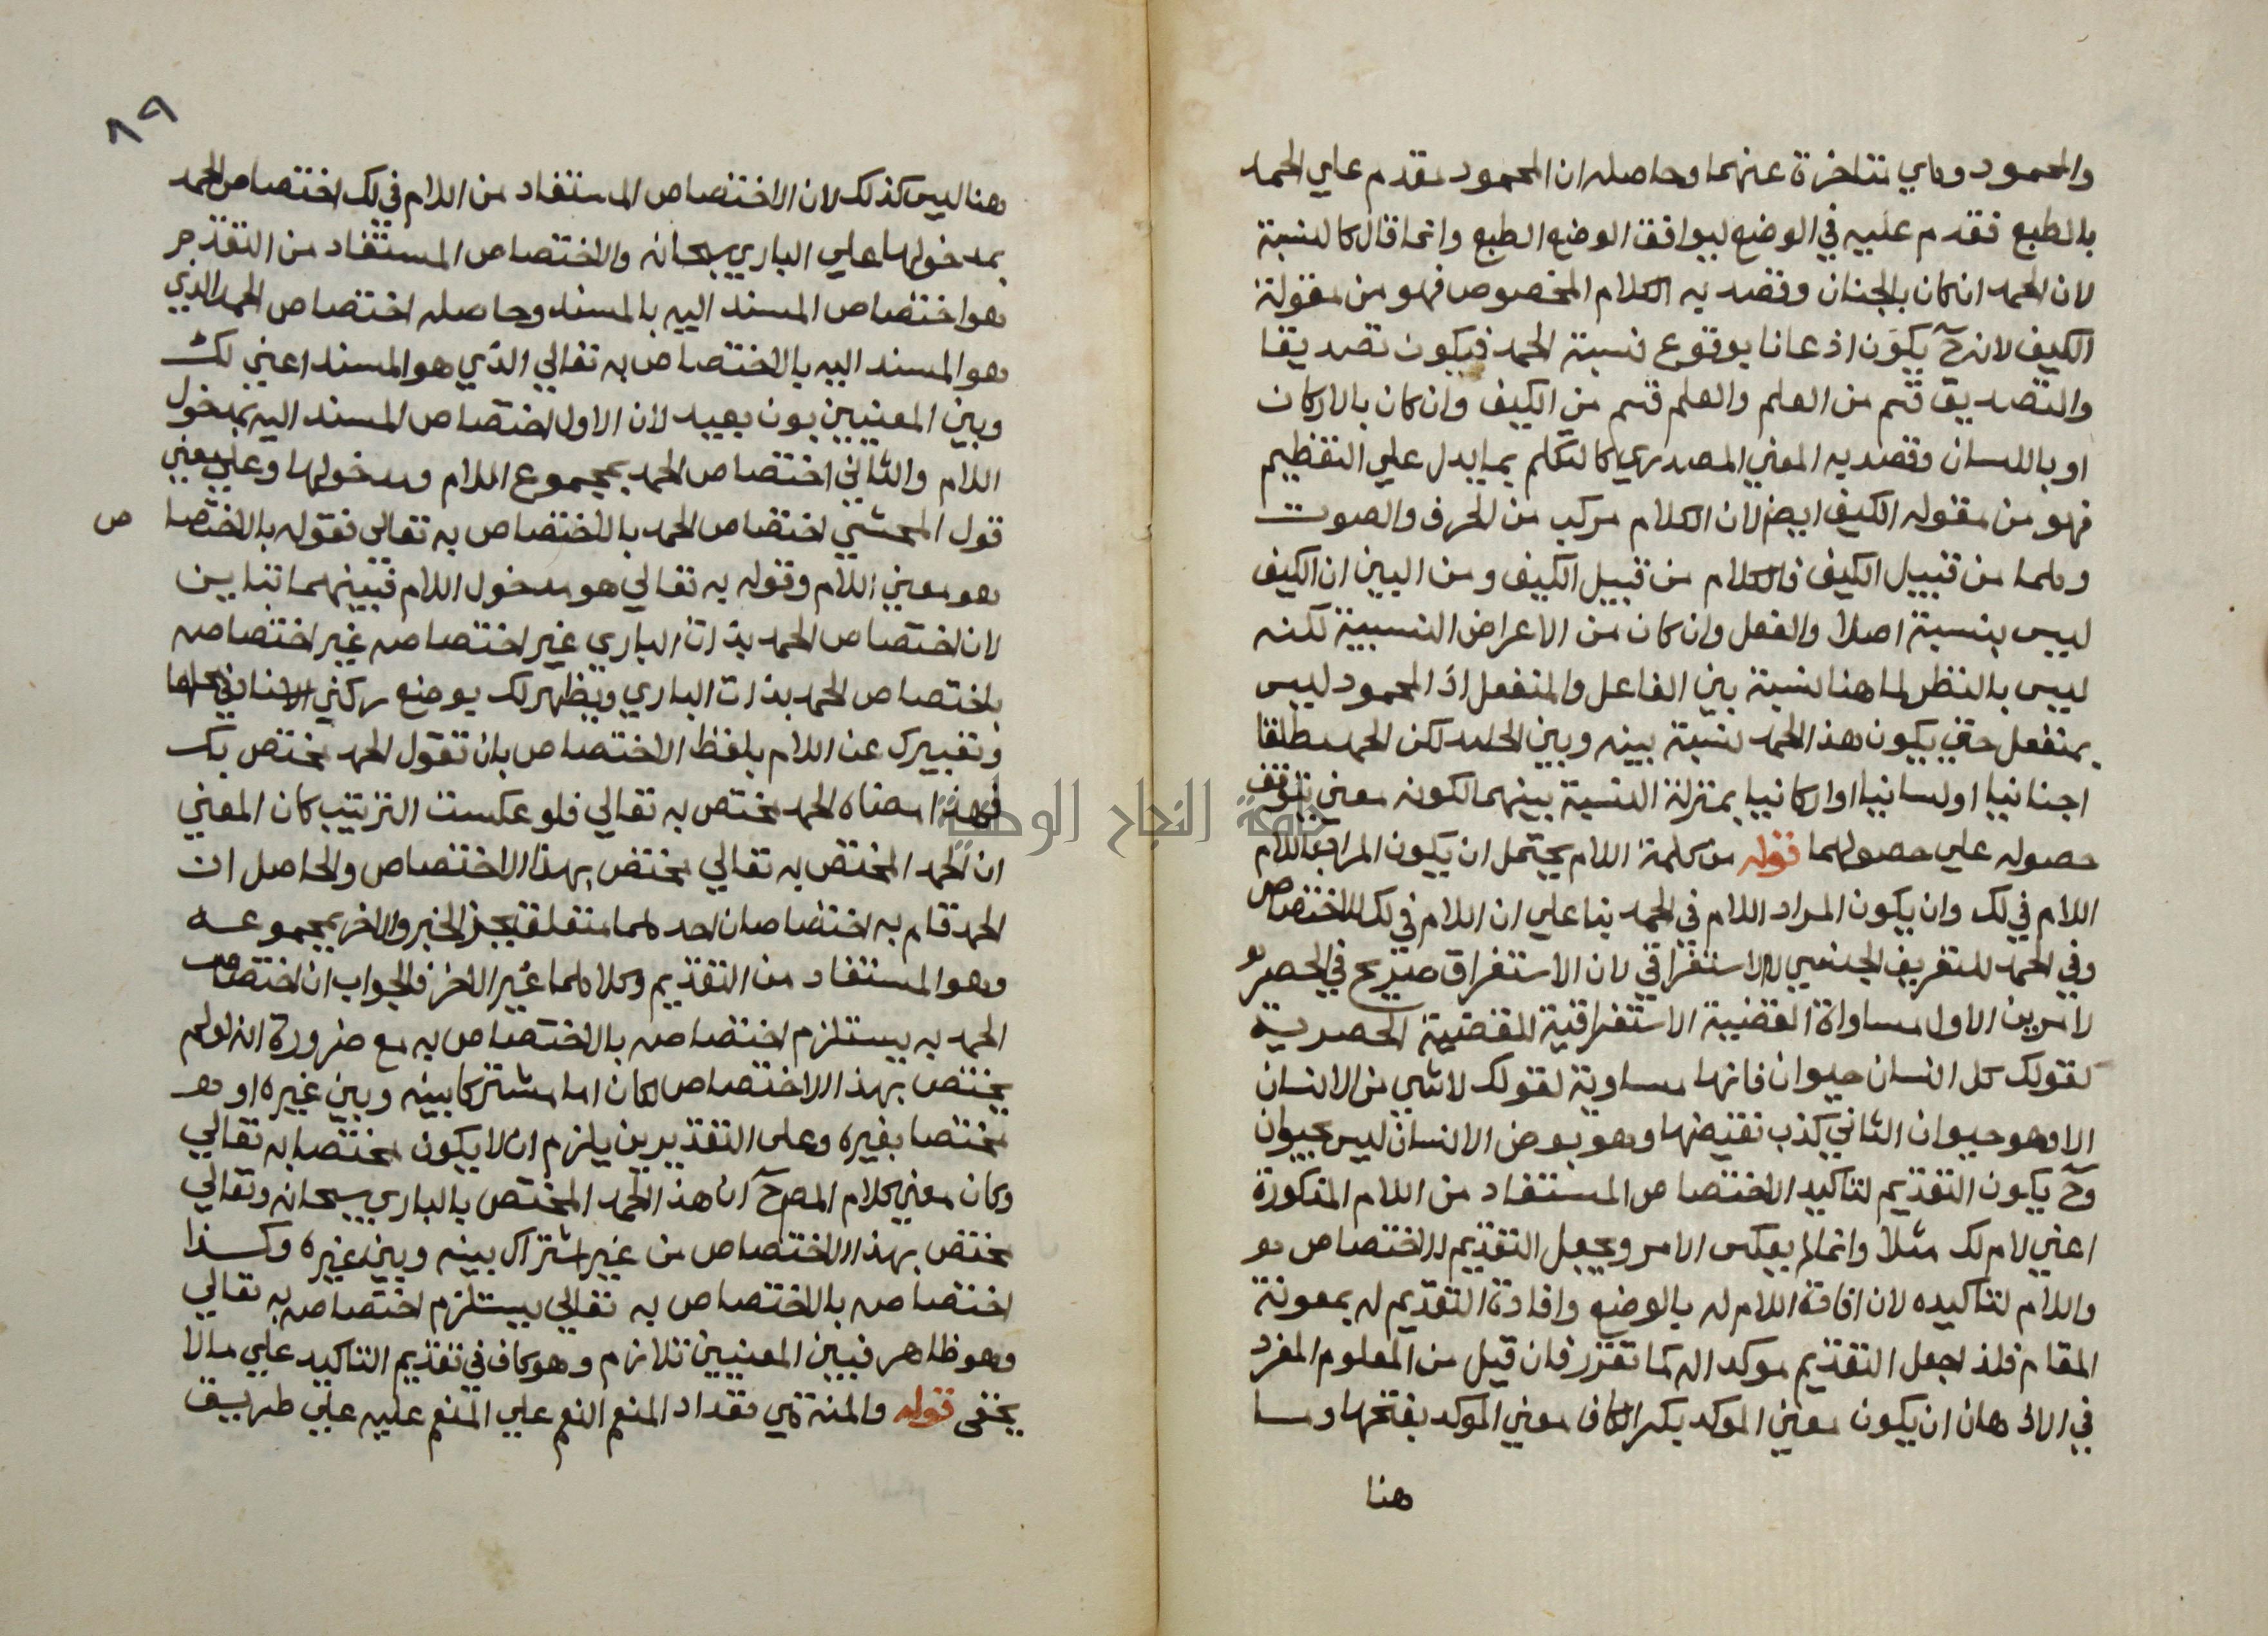 والمحمود وهي تتاخرة عنهما وحاصله ان المحمود مقدم علي الحمد
بالطبع فقدم عليه في الوضع ليوافق الوضع الطبع وانما قال كالنسبة
لان الحمد ان كان بالجنان وقصد به الكلام المخصوص فهو من مقولة
الكيف لانه ح يكون اذعانا بوقوع نسبة الحمد فيكون تصديقا
والتصديق قسم من العلم والعلم قسم من الكيف وان كان بالاركان
او باللسان وقصد به المعني المصدري كالتكلم بما يدل علي التعظيم
فهو من مقوله الكيف ايض لان الكلام مركب من الحرف والصوت
وهما من قبيل الكيف فالكلام من قبيل الكيف ومن البين ان الكيف
ليس بنسبة اصلا والفعل وان كان من الاعراض النسبية لكنه
ليس بالنظر لما هنا نسبة بين الفاعل والمنفعل اذ المحمود ليس
بمنفعل حتي يكون هذا الحمد نسبة بينه وبين الحامد لكن الحمد مطلقا
اجنانيا او لسانيا او اركانيا بمنزلة النسبة بينهما لكونه معني يتوقف
حصوله علي حصولهما قوله من كلمة اللام يحتمل ان يكون المراد باللام
اللام في لك وان يكون المراد اللام في الحمد بنا علي ان اللام في لك للاختصاص
وفي الحمد للتعريف الجنسي لا الاستغراقي لان الاستغراق صريح في الحصر
لامرين الاول مساواة القضية الاستغراقية للقضية الحصرية
كقولك كل انسان حيوان فانها مساوية لقولك لاشي من الانسان
الا وهو حيوان الثاني كذب نقيضها وهو بعض الانسان ليس بحيوان
وح يكون التقديم لتاكيد الاختصاص المستفاد من اللام المذكورة
اعني لام لك مثلا وانما لم يعكس الامر ويجعل التقديم للاختصاص
واللام لتاكيده لان افادة اللام له بالوضع وافادة التقديم له بمعونة
المقام فلذا جعل التقديم موكدا له كما تقرر فان قيل من المعلوم المقرر
في الاذهان ان يكون معني الموكد بكسر الكاف معني الموكد بفتحها وما
هنا
٨٩
هنا ليس كذلك لان الاختصاص المستفاد من اللام في لك اختصاص الحمد
بمدخولها علي الباري سبحانه والاختصاص المستفاد من التقديم
هو اختصاص المسند اليه بالمسند وحاصله اختصاص الحمد الذي
هو المسند اليه بالاختصاص به تعالي الذي هو المسند اعني لك
وبين المعنيين بون بعيد لان الاول اختصاص المسند اليه بمدخول
اللام والثاني اختصاص الحمد بمجموع اللام ومدخولها وعلي يعني
قول المحشي اختصاص الحمد بالاختصاص به تعالي فقوله بالاختصا
ص
هو معني اللام وقوله به تعالي هو مدخول اللام فبينهما تباين
لان اختصاص الحمد بذات الباري غير اختصاصه غير اختصاصه
باختصاص الحمد بذات الباري ويظهر لك بوضع ركني
وتعبيرك عن اللام بلفظ الاختصاص بان تقول الحمد مختص بك
فهذا معناه الحمد مختص به تعالي فلو عكست الترتيب كان المعني
ان الحمد المختص به تعالي مختص بهذا الاختصاص والحاصل ان
الحمد قام به اختصاصان احدهما متعلق بجز الخبر والاخر بمجموعه
وهو المستفاد من التقديم وكلاهما غير الاخر فالجواب ان اختصاص
الحمد به يستلزم اختصاصه بالاختصاص به مع ضرورة انه لو لم
يختص بهذا الاختصاص لكان اما مشتركا بينه وبين غيره او
مختصا بغيره وعلى التقديرين يلزم ان لا يكون مختصا به تعالي
وكان معني كلام المص ح ان هذا الحمد المختص بالباري سبحانه وتعالي
مختص بهذا الاختصاص من غير اشتراك بينه وبين غيره وكذا
اختصاصه بالاختصاص به تعالي يستلزم اختصاصه به تعالي
وهو ظاهر فبين المعنيين تلازم وهو كاف في تقديم التاكيد علي مالا
يخفى قوله والمنة هي تعداد المنعم النعم علي المنعم عليه علي طريق